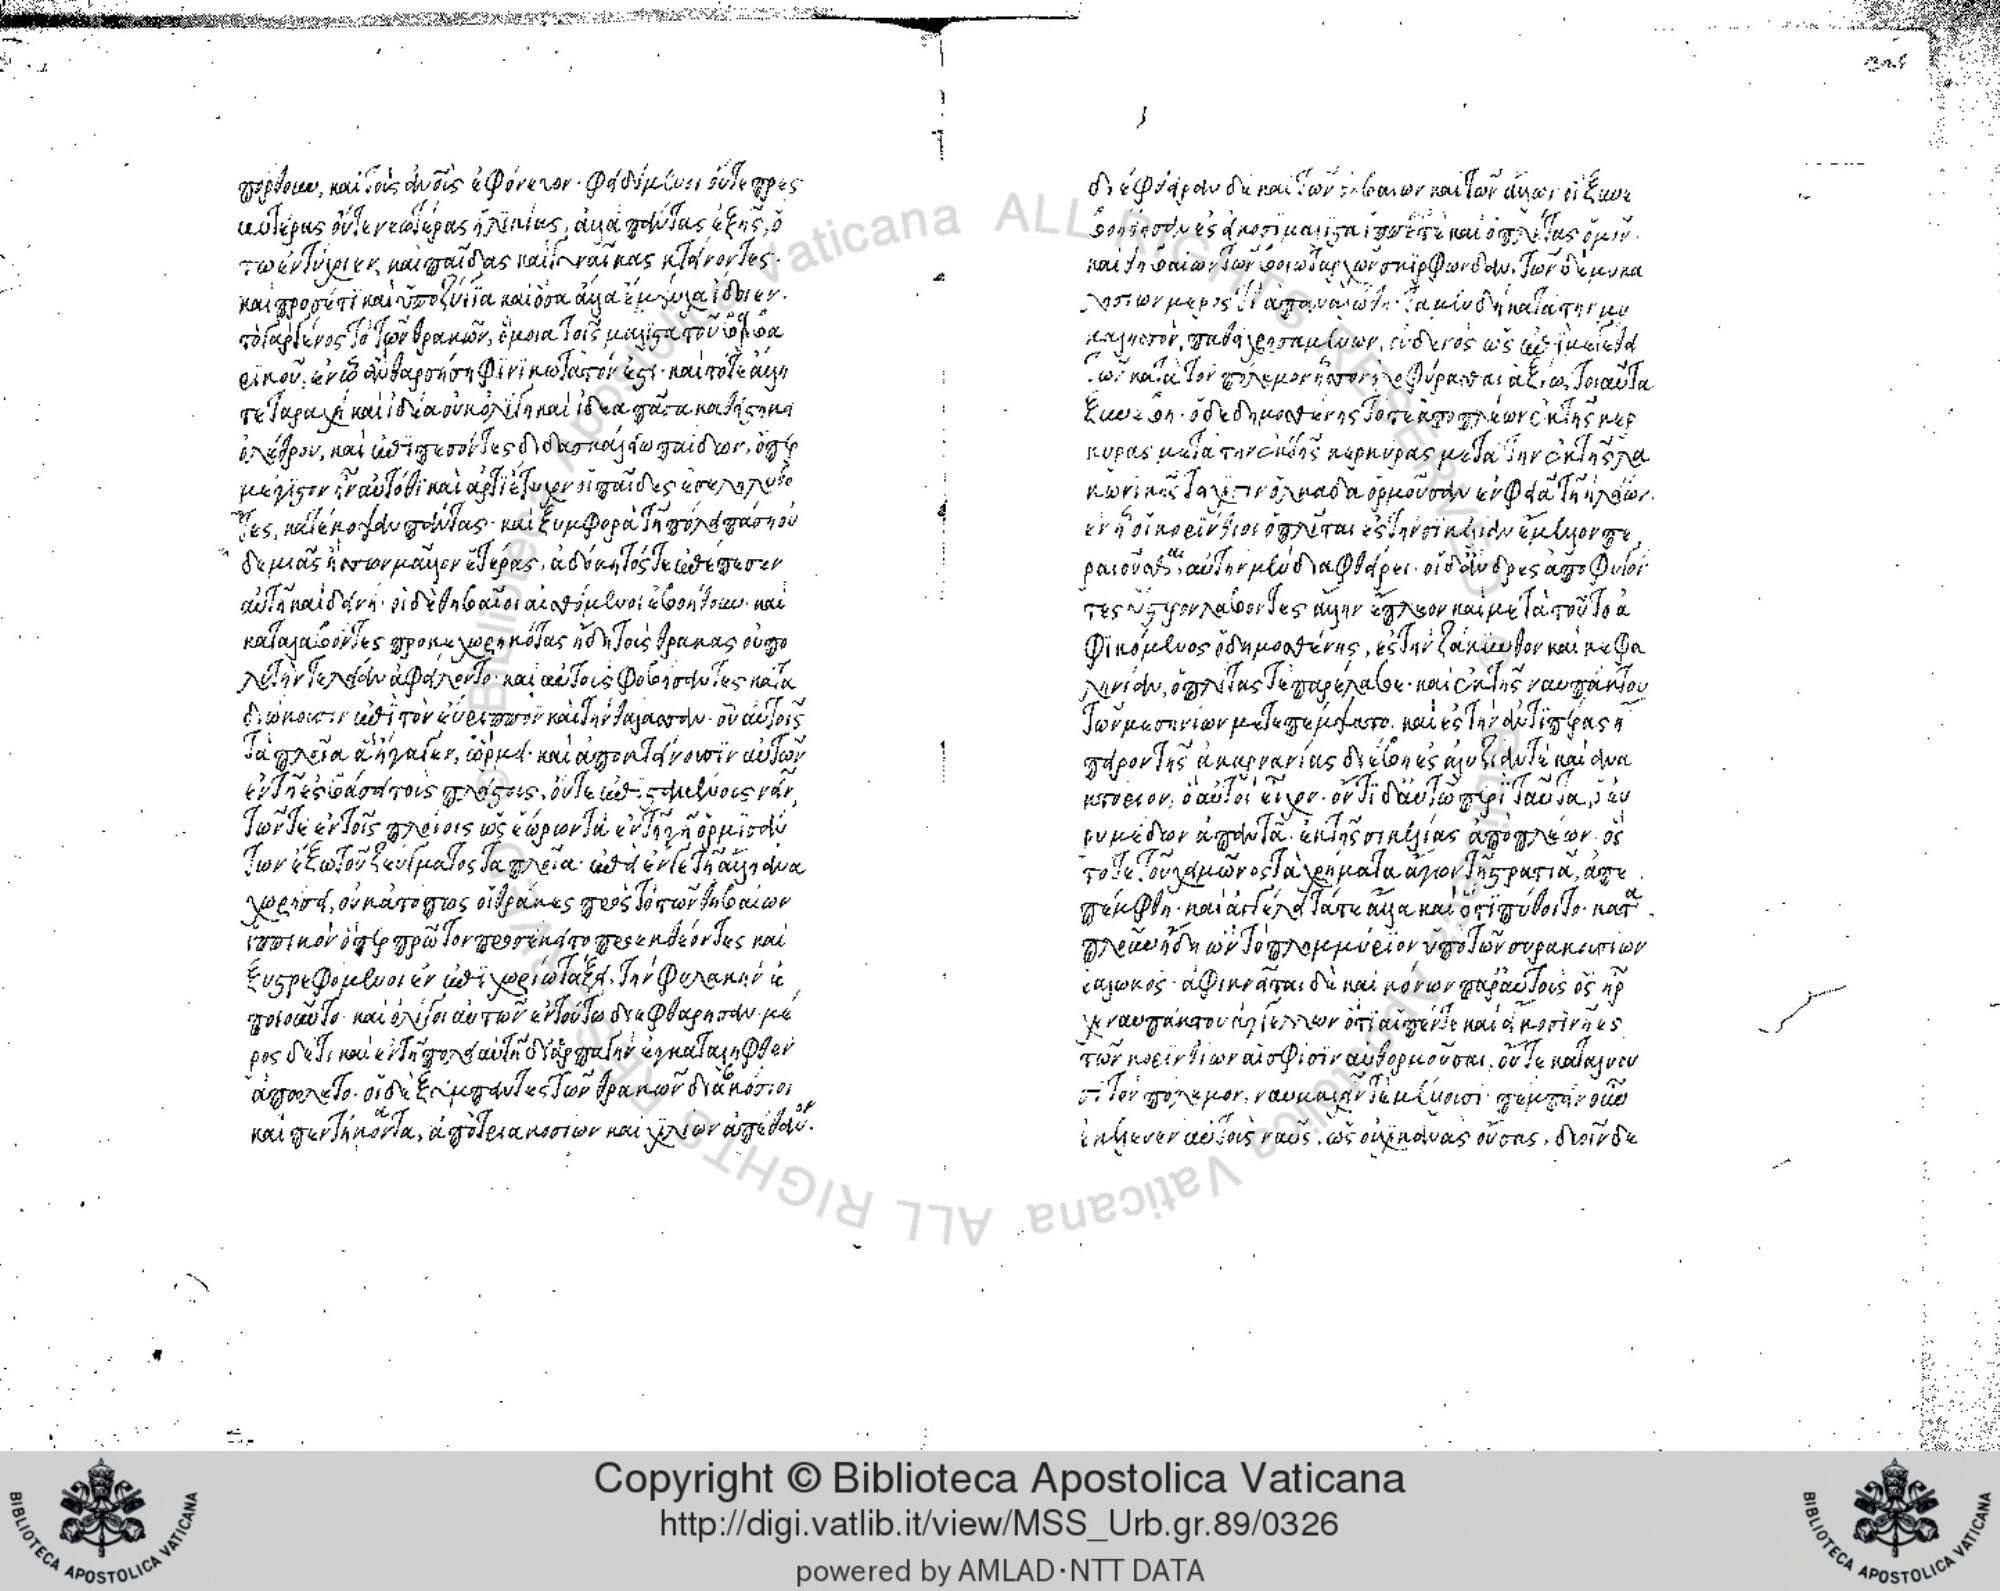 πόρθουν, καὶ τοὺς ἀνους ἐφόνευον· φειδόμενοι οὔτε πρεσ
βυτέρας οὔτε νεωτέρας ἡλικίας, ἀλλὰ πάντας ἑξῆς, ὅ
τω ἐντύχοιεν καὶ παῖδας καὶ γυναῖκας κτείνοντες·
καὶ προσέτι καὶ ὑποζύγια καὶ ὅσα ἄλλα ἔμψυχα ἴδοιεν.
τὸ γὰρ γένος τὸ τῶν θρακῶν, ὅμοια τοῖς μάλιστα τοῦ βαρβα
ρικοῦ, ἐν ᾧ ἂν θαρσήσῃ φονικώτατόν ἐστι· καὶ τότε ἄλλη
τε ταραχὴ καὶ ἰδέα οὐκ ὀλίγη καὶ ἰδέα πᾶσα καθήστηκει
ὀλέθρου, καὶ ἐπιπεσόντες διδασκαλείω παίδων, ὅπερ
μέγιστον ἦν αὐτόθι καὶ ἄρτι ἔτυχον οἱ παῖδες ἐσεληλυθό
τες, κατέκοψαν πάντας· καὶ ξυμφορὰ τῇ πόλει πάσῃ οὐ
δεμιᾶς ἥσσων μᾶλλον ἑτέρας, ἀδόκητός τε ἐπέπεσεν
αὕτη καὶ δεινή· οἱ δὲ θηβαῖοι αἰσθόμενοι ἐβοήθουν· καὶ
καταλαβόντες προκεχωρηκότας ἤδη τοὺς θρᾶκας οὐ πο
λὺ τήν τε λείαν ἀφείλοντο· καὶ αὐτοὺς φοβήσαντες κατα
διώκουσιν ἐπὶ τὸν εὔριππον καὶ τὴν θάλασσαν· οὗ αὐτοῖς
τὰ πλοῖα ἃ ἤγαγεν, ὥρμει· καὶ ἀποκτείνουσιν αὐτῶν
ἐν τῇ ἐσβάσει τοὺς πλείστους, οὔτε ἐπισταμένους νεῖν,
τῶν τε ἐν τοῖς πλοίοις ὡς ἑώρων τὰ ἐν τῇ γῇ ὁρμισάν
των ἔξω τοῦ ζεύγματος τὰ πλοῖα· ἐπεὶ ἔν γε τῇ ἄλλῃ ἀνα
χωρήσει, οὐκ ἀτόπως οἱ θρᾶκες πρὸς τὸ τῶν θηβαίων
ἱππικὸν ὅπερ πρῶτον προσέκειτο προεκθέοντες καὶ
ξυστρεφόμενοι ἐν ἐπιχωρίω τάξει, τὴν φυλακὴν ἐ
ποιοῦντο· καὶ ὀλίγοι αὐτῶν ἐν τούτω διεφθάρησαν· μέ
ρος δέ τι καὶ ἐν τῇ πόλει αὐτῇ δι' ἁρπαγὴν ἐγκαταληφθὲν
ἀπώλετο· οἱ δὲ ξύμπαντες τῶν θρακῶν διακόσιοι
καὶ πεντήκοντα, ἀπὸ τριακοσίων καὶ χιλίων ἀπέθανον.
διέφθειραν δὲ καὶ τῶν θηβαίων καὶ τῶν ἄλλων οἳ ξυνε
βοήθησαν ἐς εἴκοσι μάλιστα ἱππέας τε καὶ ὁπλίτας ὁμοῦ·
καὶ θηβαίων τῶν βοιωταρχῶν σκιρφώνδαν. τῶν δὲ μυκα
λησίων μέρος τι ἀπαναλώθη· τὰ μὲν δὴ κατὰ τὴν μυ
καλησσὸν, πάθη χρησαμένων, οὐδενὸς ὡς ἐπὶ μεγέθει
τῶν κατὰ τὸν πόλεμον ἧσσον ὀλοφύρασθαι ἀξίω, τοιαῦτα
ξυνέβη· ὁ δὲ δημοσθένης τότε ἀποπλέων ἐκ τῆς κερ
κύρας μετὰ τὴν ἐκ τῆς κερκύρας μετὰ τὴν ἐκ τῆς λα
κωνικῆς τείχισιν ὁλκάδα ὁρμοῦσαν ἐν φειᾷ τῇ ἠλείων.
ἐν ᾗ οἱ κορίνθιοι ὁπλῖται ἐς τὴν σικελίαν ἔμελλον πε
ραιοῦσθαι, αὐτὴν μὲν διαφθείρει· οἱ δ' ἄνδρες ἀποφυγόν
τες ὕστερον λαβόντες ἄλλην ἔπλεον καὶ μετὰ τοῦτο ἀ
φικόμενος ὁ δημοσθένης, ἐς τὴν ζάκυνθον καὶ κεφα
ληνίαν, ὁπλίτας τε παρέλαβε· καὶ ἐκ τῆς ναυπάκτου
τῶν μεσηνίων μετεπέμψατο. καὶ ἐς τὴν ἀντιπέρας ἤ
πειρον τῆς ἀκαρνανίας διέβη ἐς ἀλύζιάν τε καὶ ἀνα
κτόριον, ὃ αὐτοὶ εἶχον· ὄντι δ' αὐτῷ περὶ ταῦτα, ὁ εὐ
ρυμέδων ἀπαντᾷ· ἐκ τῆς σικελίας ἀποπλέων. ὃς
τότε τοῦ χειμῶνος τὰ χρήματα ἄγων τῇ στρατιᾷ, ἀπε
πέμφθη· καὶ ἀγγέλλει τά τε ἄλλα καὶ ὅτι πύθοιτο κατὰ
πλοῦν ἤδη ὢν τὸ πλημμύριον ὑπὸ τῶν συρακουσίων
ἑαλωκός· ἀφικνεῖται δὲ καὶ κόνων παρ' αὐτοὺς ὃς ἦρ
χε ναυπάκτου ἀγγέλλων ὅτι αἱ πέντε καὶ εἴκοσι νῆες
τῶν κορινθίων αἱ σφίσιν ἀνθορμοῦσαι, οὔτε καταλύου
σι τὸν πόλεμον, ναυμαχεῖν τε μέλλουσι· πέμπειν οὖν
ἐκέλευεν αὐτοὺς ναῦς, ὡς οὐχ ἱκανὰς οὔσας, δυοῖν δε
Copyright © Biblioteca Apostolica Vaticana
http://digi.vatlib.it/view/MSS_Urb.gr.89/0326
powered by AMLAD·NTT DATA